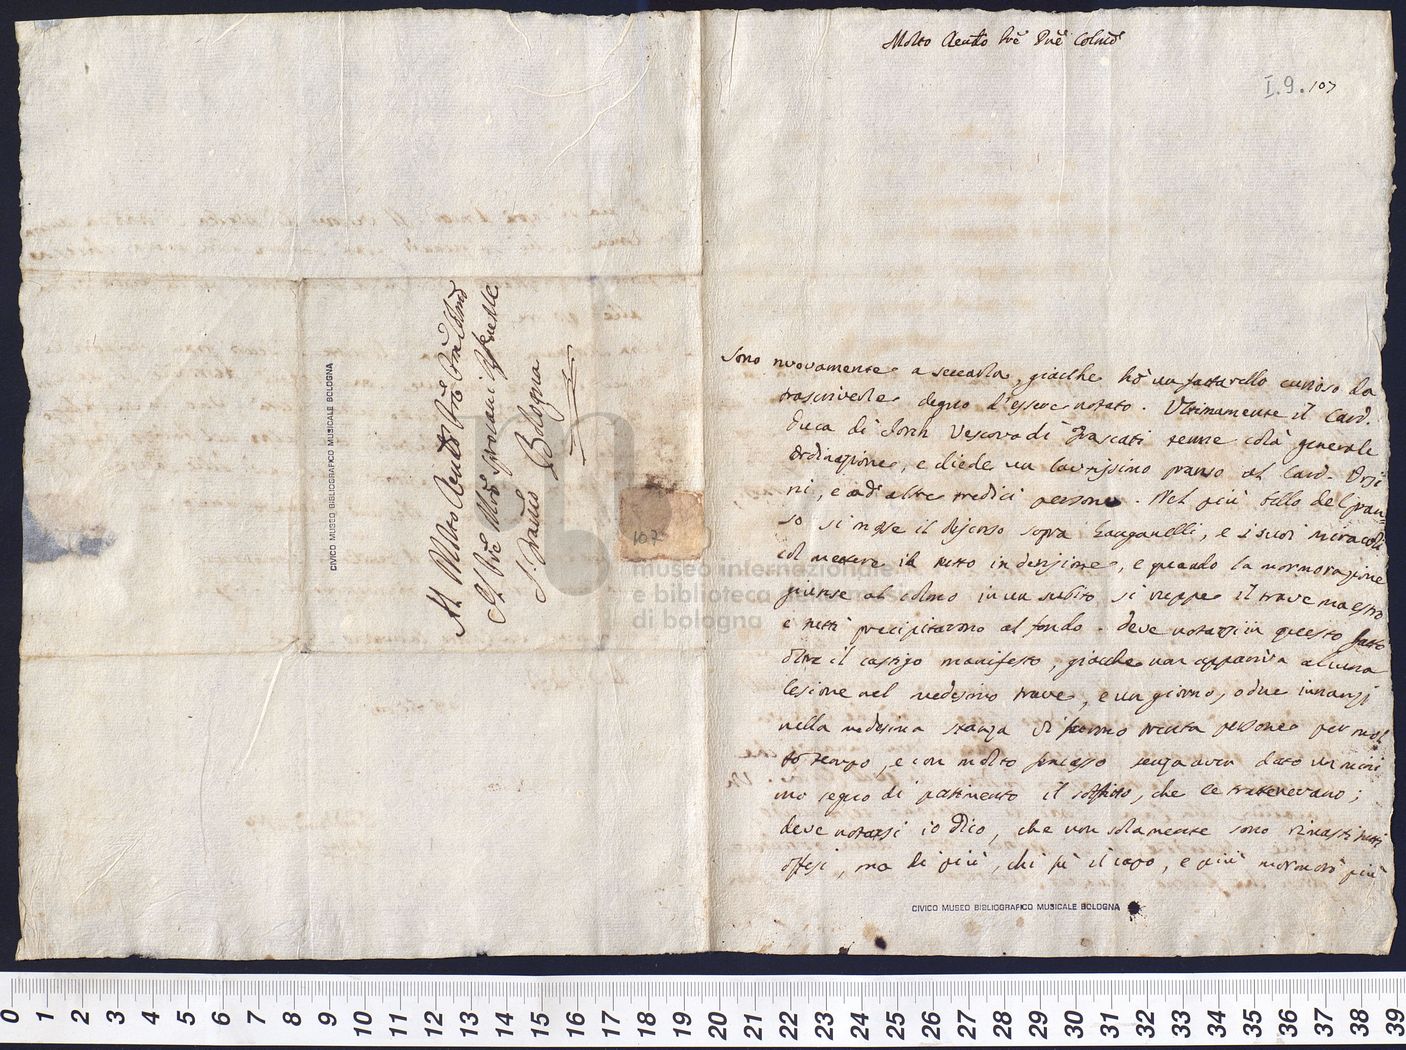 Molto Rendo Pre Pne Colmo
I.9.107
Sono nuovamente a seccarla, giacche hò un fattarello curioso da
trascriverle degno d'essere notato. Ultimamente il Card.
Duca di Jorch Vescovo di Frascati tenne colà generale
Ordinazione, e diede un lautissimo pranso al Card. Orsi
ni, e ad altre tredici persone. Nel più bello del pran=
so si mise il discorso sopra Ganganelli, e i suoi miracoli
col mettere il tutto in derisione, e quando la mormorazione
giunse al colmo in un subito si ruppe il trave maestro
e tutti precipitarono al fondo. Deve notarsi in questo fatto
oltre il castigo manifesto, giacche non appariva alcuna
lesione nel medesimo trave, e un giorno, o due innanzi
nella medesima stanza vi furono trenta persone per mol
to tempo, e con molto fracasso senza aver dato un mini
mo segno di patimento il soffitto, che le tratenevano;
deve notarsi io dico, che non solamente sono rimasti tutti
offesi, ma di più, chi fù il capo, e più mormorò più
CIVICO MUSEO BIBLIOGRAFICO MUSICALE BOLOGNA
Al Molto Rendo Pre Pne Colmo
Il Pre Mro Giovani
S. Franco Bologna
CIVICO MUSEO BIBLIOGRAFICO MUSICALE BOLOGNA
107
museo internazionale
e biblioteca della musica
di bologna
0 1 2 3 4 5 6 7 8 9 10 11 12 13 14 15 16 17 18 19 20 21 22 23 24 25 26 27 28 29 30 31 32 33 34 35 36 37 38 39